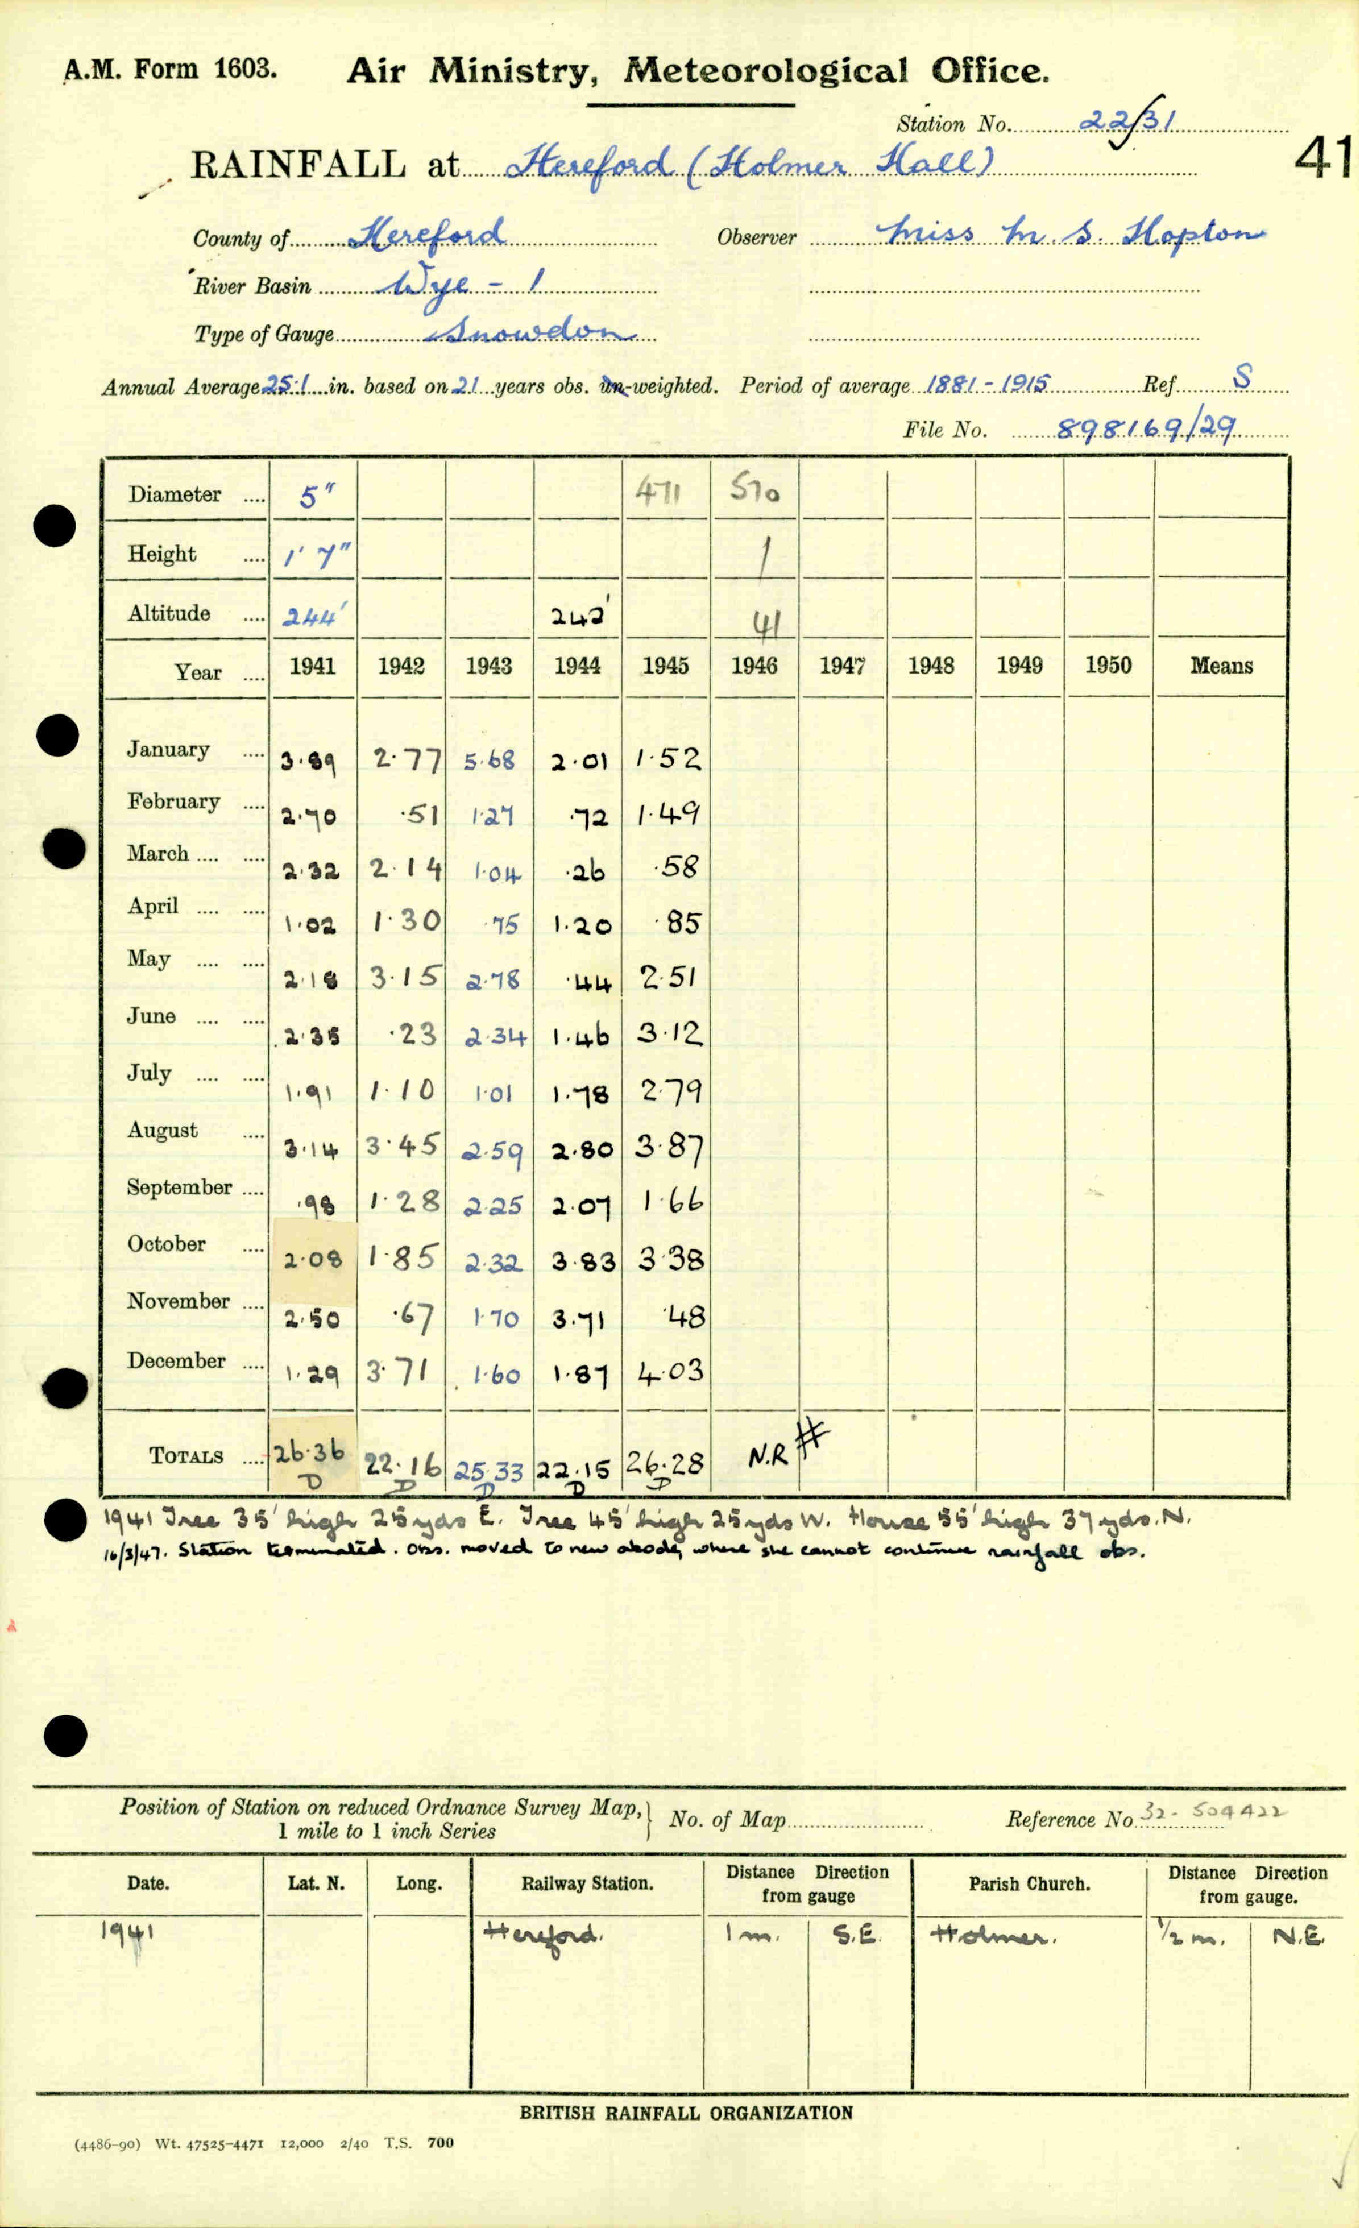 A.M. Form 1603. Air Ministry, Meteorological Office.
Station No. 22/31
RAINFALL at Hereford (Holmer Hall) 41
County of Hereford Observer Miss M. S. Hopton
River Basin Wye - 1
Type of Gauge Snowdon
Annual Average 25.1 in. based on 21 years obs. un-weighted. Period of average 1881-1915 Ref. S
File No. 898169/29
Diameter .... 5" 471 570
Height .... 1' 7" 1
Altitude .... 244' 242' 41
Year .... 1941 1942 1943 1944 1945 1946 1947 1948 1949 1950 Means
January .... 3.89 2.77 5.68 2.01 1.52
February .... 2.70 .51 1.27 .72 1.49
March .... .... 2.32 2.14 1.04 .26 .58
April .... .... 1.02 1.30 .75 1.20 .85
May .... .... 2.18 3.15 2.78 .44 2.51
June .... .... 2.35 .23 2.34 1.46 3.12
July .... .... 1.91 1.10 1.01 1.78 2.79
August .... 3.14 3.45 2.59 2.80 3.87
September .... .98 1.28 2.25 2.07 1.66
October .... 2.08 1.85 2.32 3.83 3.38
November .... 2.50 .67 1.70 3.71 .48
December .... 1.29 3.71 1.60 1.87 4.03
TOTALS .... 26.36 22.16 25.33 22.15 26.28 N.R #
D D D D D
1941 Tree 35' high 25 yds E. Tree 45' high 25 yds W. House 55' high 37 yds. N.
16/3/47. Station terminated. Obs. moved to new abode, where she cannot continue rainfall obs.
Position of Station on reduced Ordnance Survey Map, 1 mile to 1 inch Series } No. of Map Reference No. 32- 504422
Date. Lat. N. Long. Railway Station. Distance Direction from gauge Parish Church. Distance Direction from gauge.
1941 Hereford. 1 m. S.E. Holmer. ½ m. N.E.
BRITISH RAINFALL ORGANIZATION
(4486-90) Wt. 47525-4471 12,000 2/40 T.S. 700